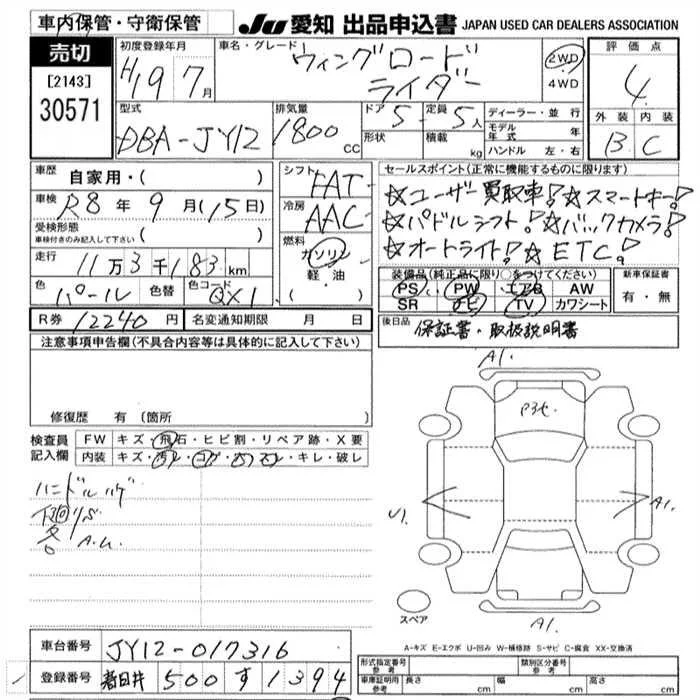 車内保管・守衛保管
JU 愛知 出品申込書 JAPAN USED CAR DEALERS ASSOCIATION
売切
[2143]
30571
初度登録年月
H19 7月
車名・グレード
ウィングロード
ライダー
2WD
4WD
評価点
4
外装 内装
B C
型式
DBA-JY12
排気量
1800 CC
ドア 5
形状
定員 5人
積載 kg
ディーラー・並行
モデル年式 年
ハンドル 左・右
車歴 自家用・( )
車検 R8年 9月(15日)
受検形態
車検付きのみ記入して下さい ( )
走行 11万3千183km
色 パール 色替 色コード QX1
シフト FAT
冷房 AAC
燃料 ガソリン
軽・油
セールスポイント(正常に機能するものに限ります)
☆ユーザー買取車!☆スマートキー!
☆パドルシフト!☆バックカメラ!
☆オートライト!☆ETC!
装備品(純正品に限り○をつけてください)
PS PW エアB AW
SR ナビ TV カワシート
新車保証書
有・無
R券 12240円 名変通知期限 月 日
後日品 保証書・取扱説明書
注意事項申告欄(不具合内容等は具体的に記入して下さい)
修復歴 有(箇所
検査員記入欄
FW キズ・飛石・ヒビ割・リペア跡・X要
内装 キズ・汚レ・コゲ・キレ・破レ
ハンドルハゲ
A1.
A1.
U1.
A1.
スペア
A-キズ E-エクボ U-凹み W-補修跡 S-サビ C-腐食 XX-交換済
車台番号 JY12-017316
登録番号 春日井 500 す 1394
形式指定番号 参考
類別区分番号 参考
車庫証明用 参考
長さ cm 幅 cm 高さ cm